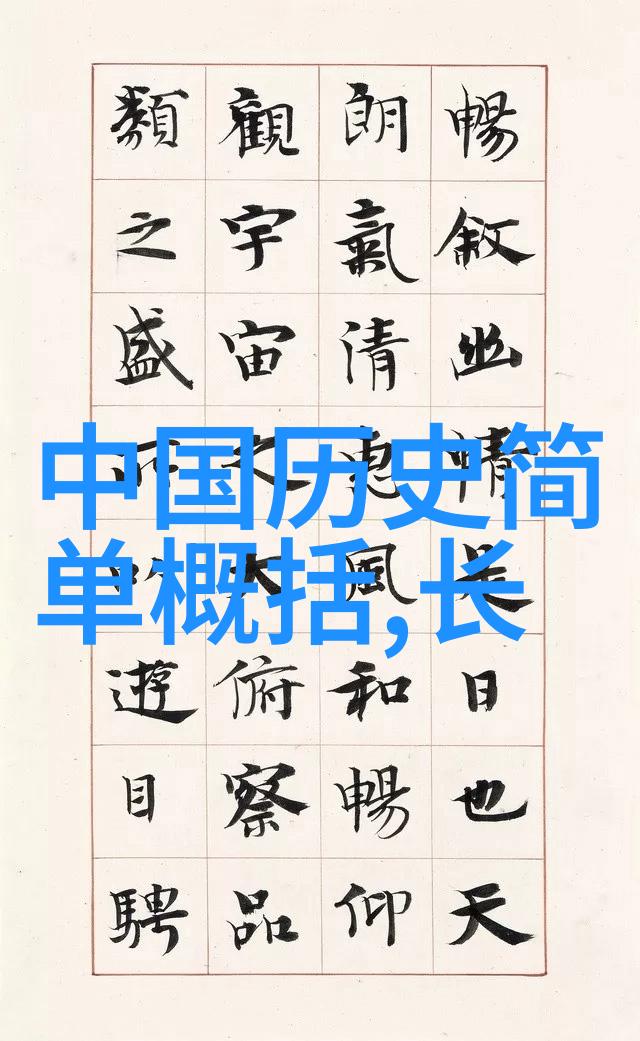 暢敘幽情是日也天
朗氣清惠風和暢仰
觀宇宙之大俯察品
類之盛所以遊目騁
中国历史简
单概括,长